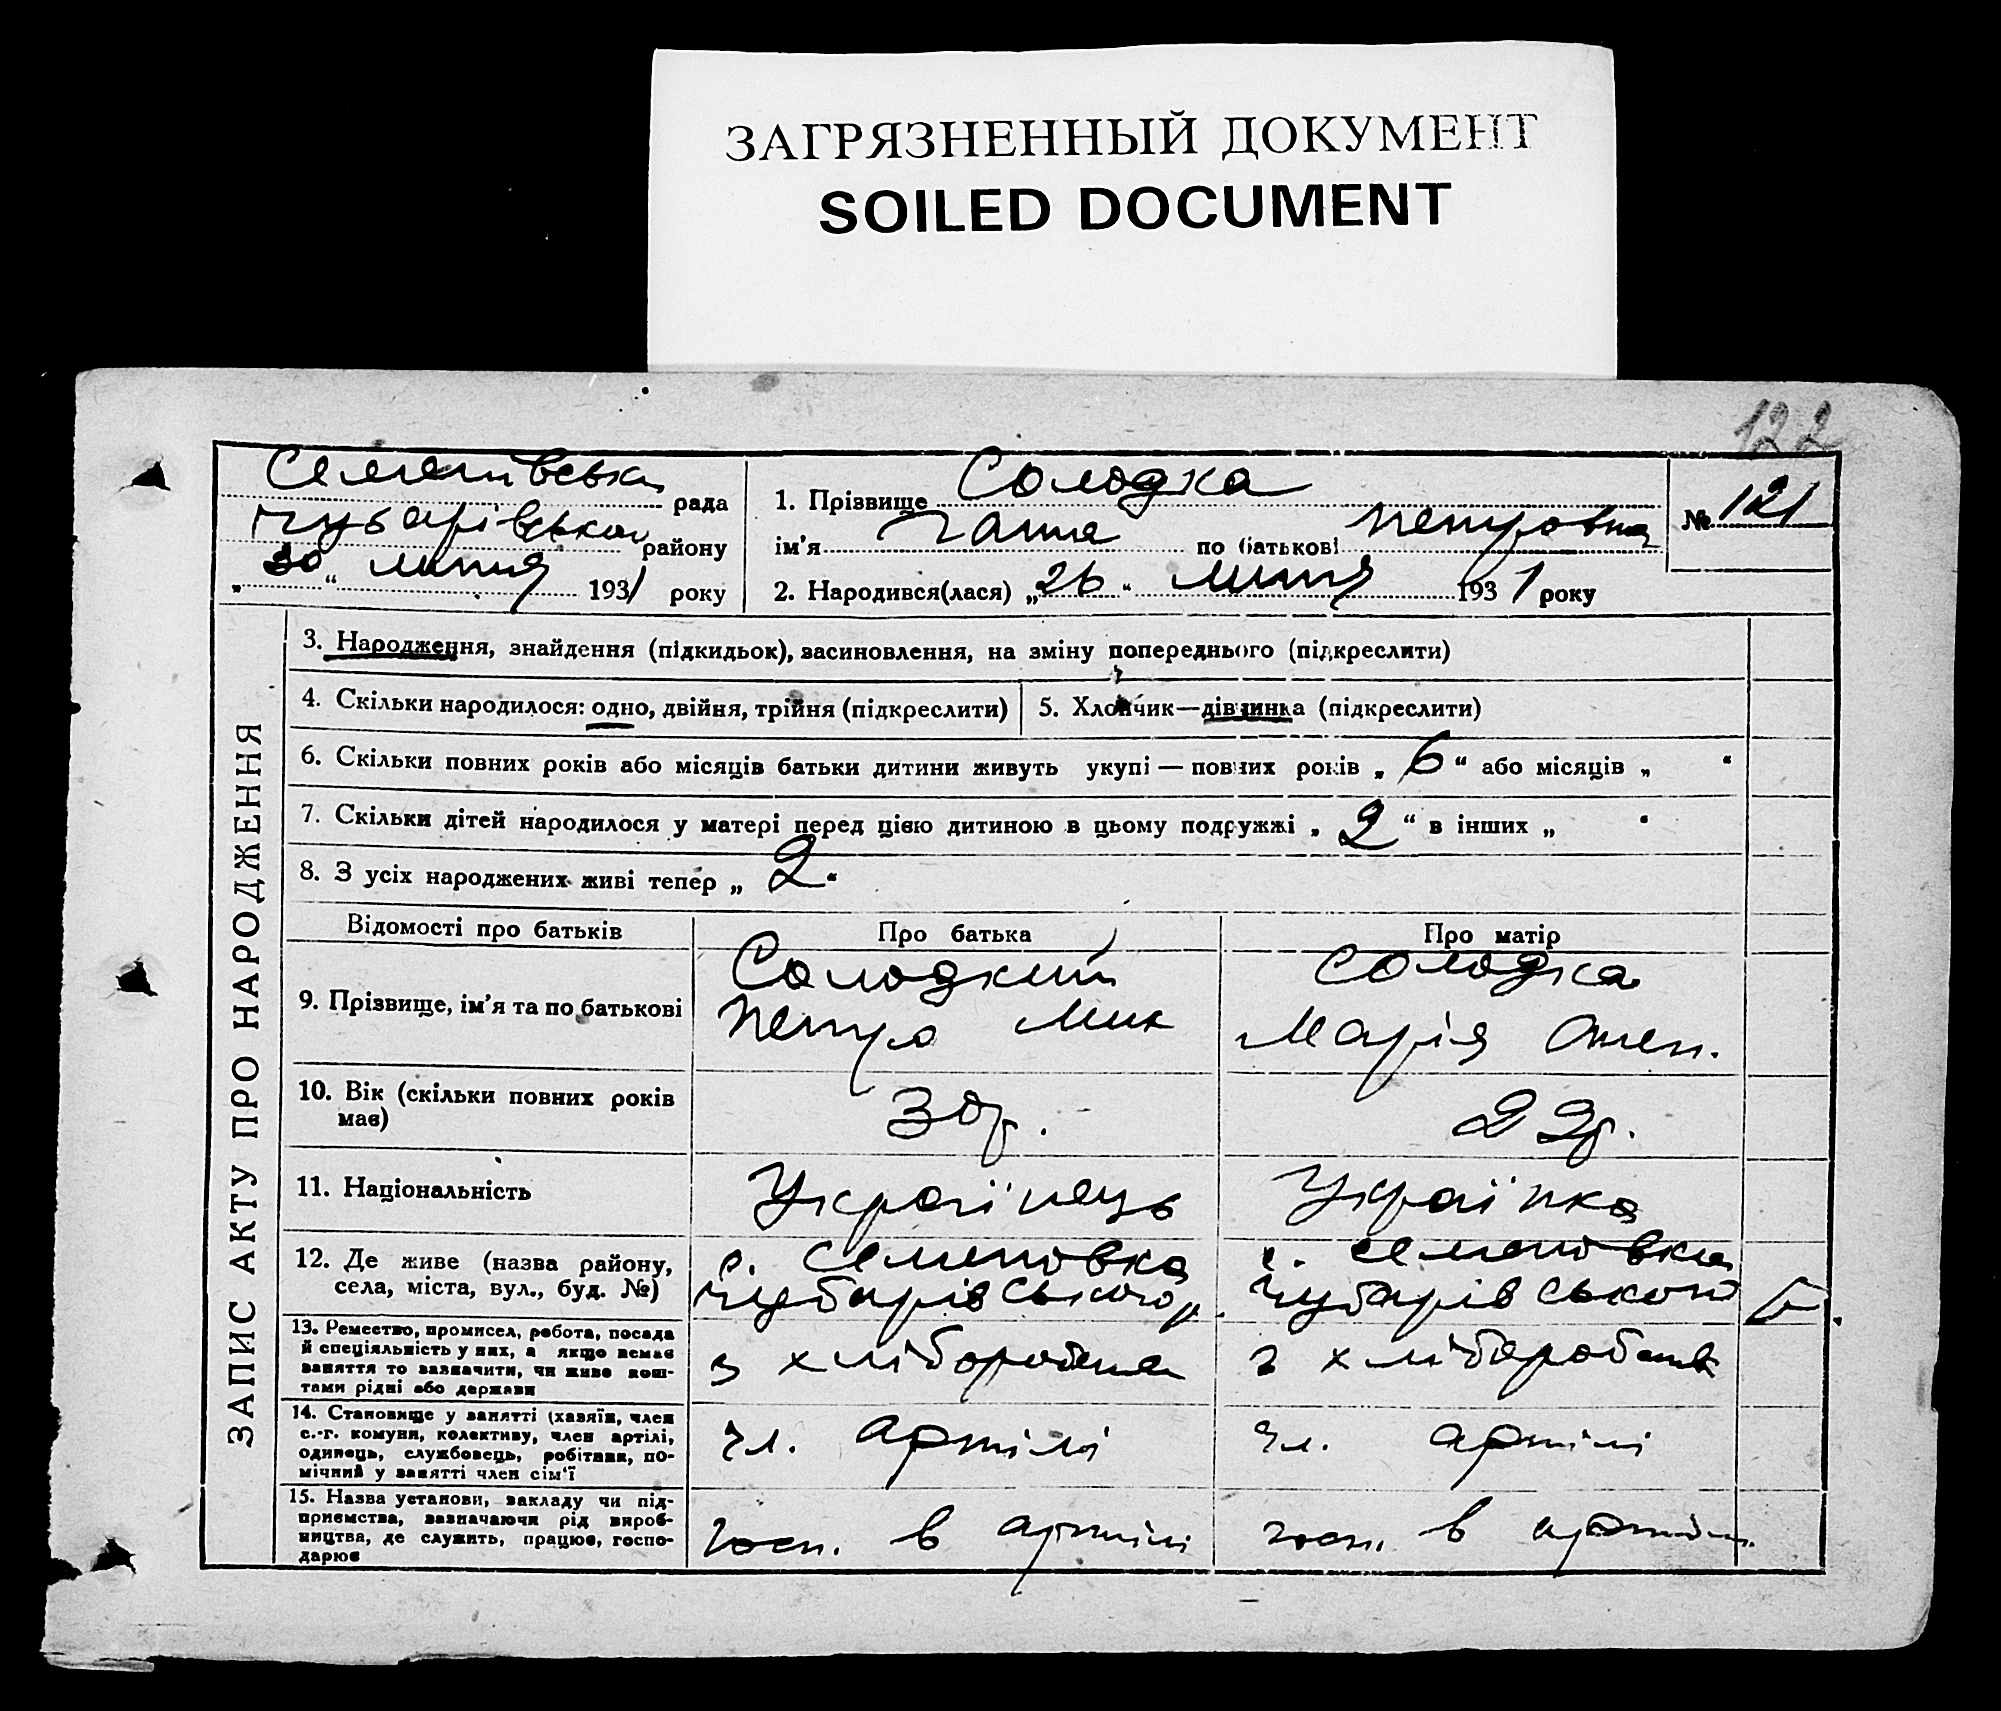 ЗАГРЯЗНЕННЫЙ ДОКУМЕНТ
SOILED DOCUMENT
122
Семенівська рада
Чубарівського району
„30“ липня 1931 року
1. Прізвище Солодка
ім'я Ганна по батькові Петровна
№ 121
2. Народився(лася) „26“ липня 1931 року
ЗАПИС АКТУ ПРО НАРОДЖЕННЯ
3. Народження, знайдення (підкидьок), засиновлення, на зміну попереднього (підкреслити)
4. Скільки народилося: одно, двійня, трійня (підкреслити)
5. Хлопчик—дівчинка (підкреслити)
6. Скільки повних років або місяців батьки дитини живуть укупі — повних років „6“ або місяців „ “
7. Скільки дітей народилося у матері перед цією дитиною в цьому подружжі „2“ в інших „ “
8. З усіх народжених живі тепер „2“
Відомості про батьків Про батька Про матір
9. Прізвище, ім'я та по батькові
Солодкий
Петро Мик
Солодка
Марія
10. Вік (скільки повних років
має)
30р.
22р.
11. Національність
Українець
Українка
12. Де живе (назва району,
села, міста, вул., буд. №)
с. Семеновка
Чубарівського р.
с. Семеновка
Чубарівського
13. Ремество, промисел, робота, посада
й спеціяльність у них, а якщо немає
заняття то зазначити, чи живе кош-
тами рідні або держави
з хлібороба
з хліборобства
14. Становище у занятті (хазяїн, член
с.-г. комуни, колективу, член артілі,
одинець, службовець, робітник, по-
мічний у занятті член сім'ї
чл. артілі
чл. артілі
15. Назва установи, закладу чи під-
приємства, зазначаючи рід вироб-
ництва, де служить, працює, госпо-
дарює
госп. в артілі
госп. в артілі